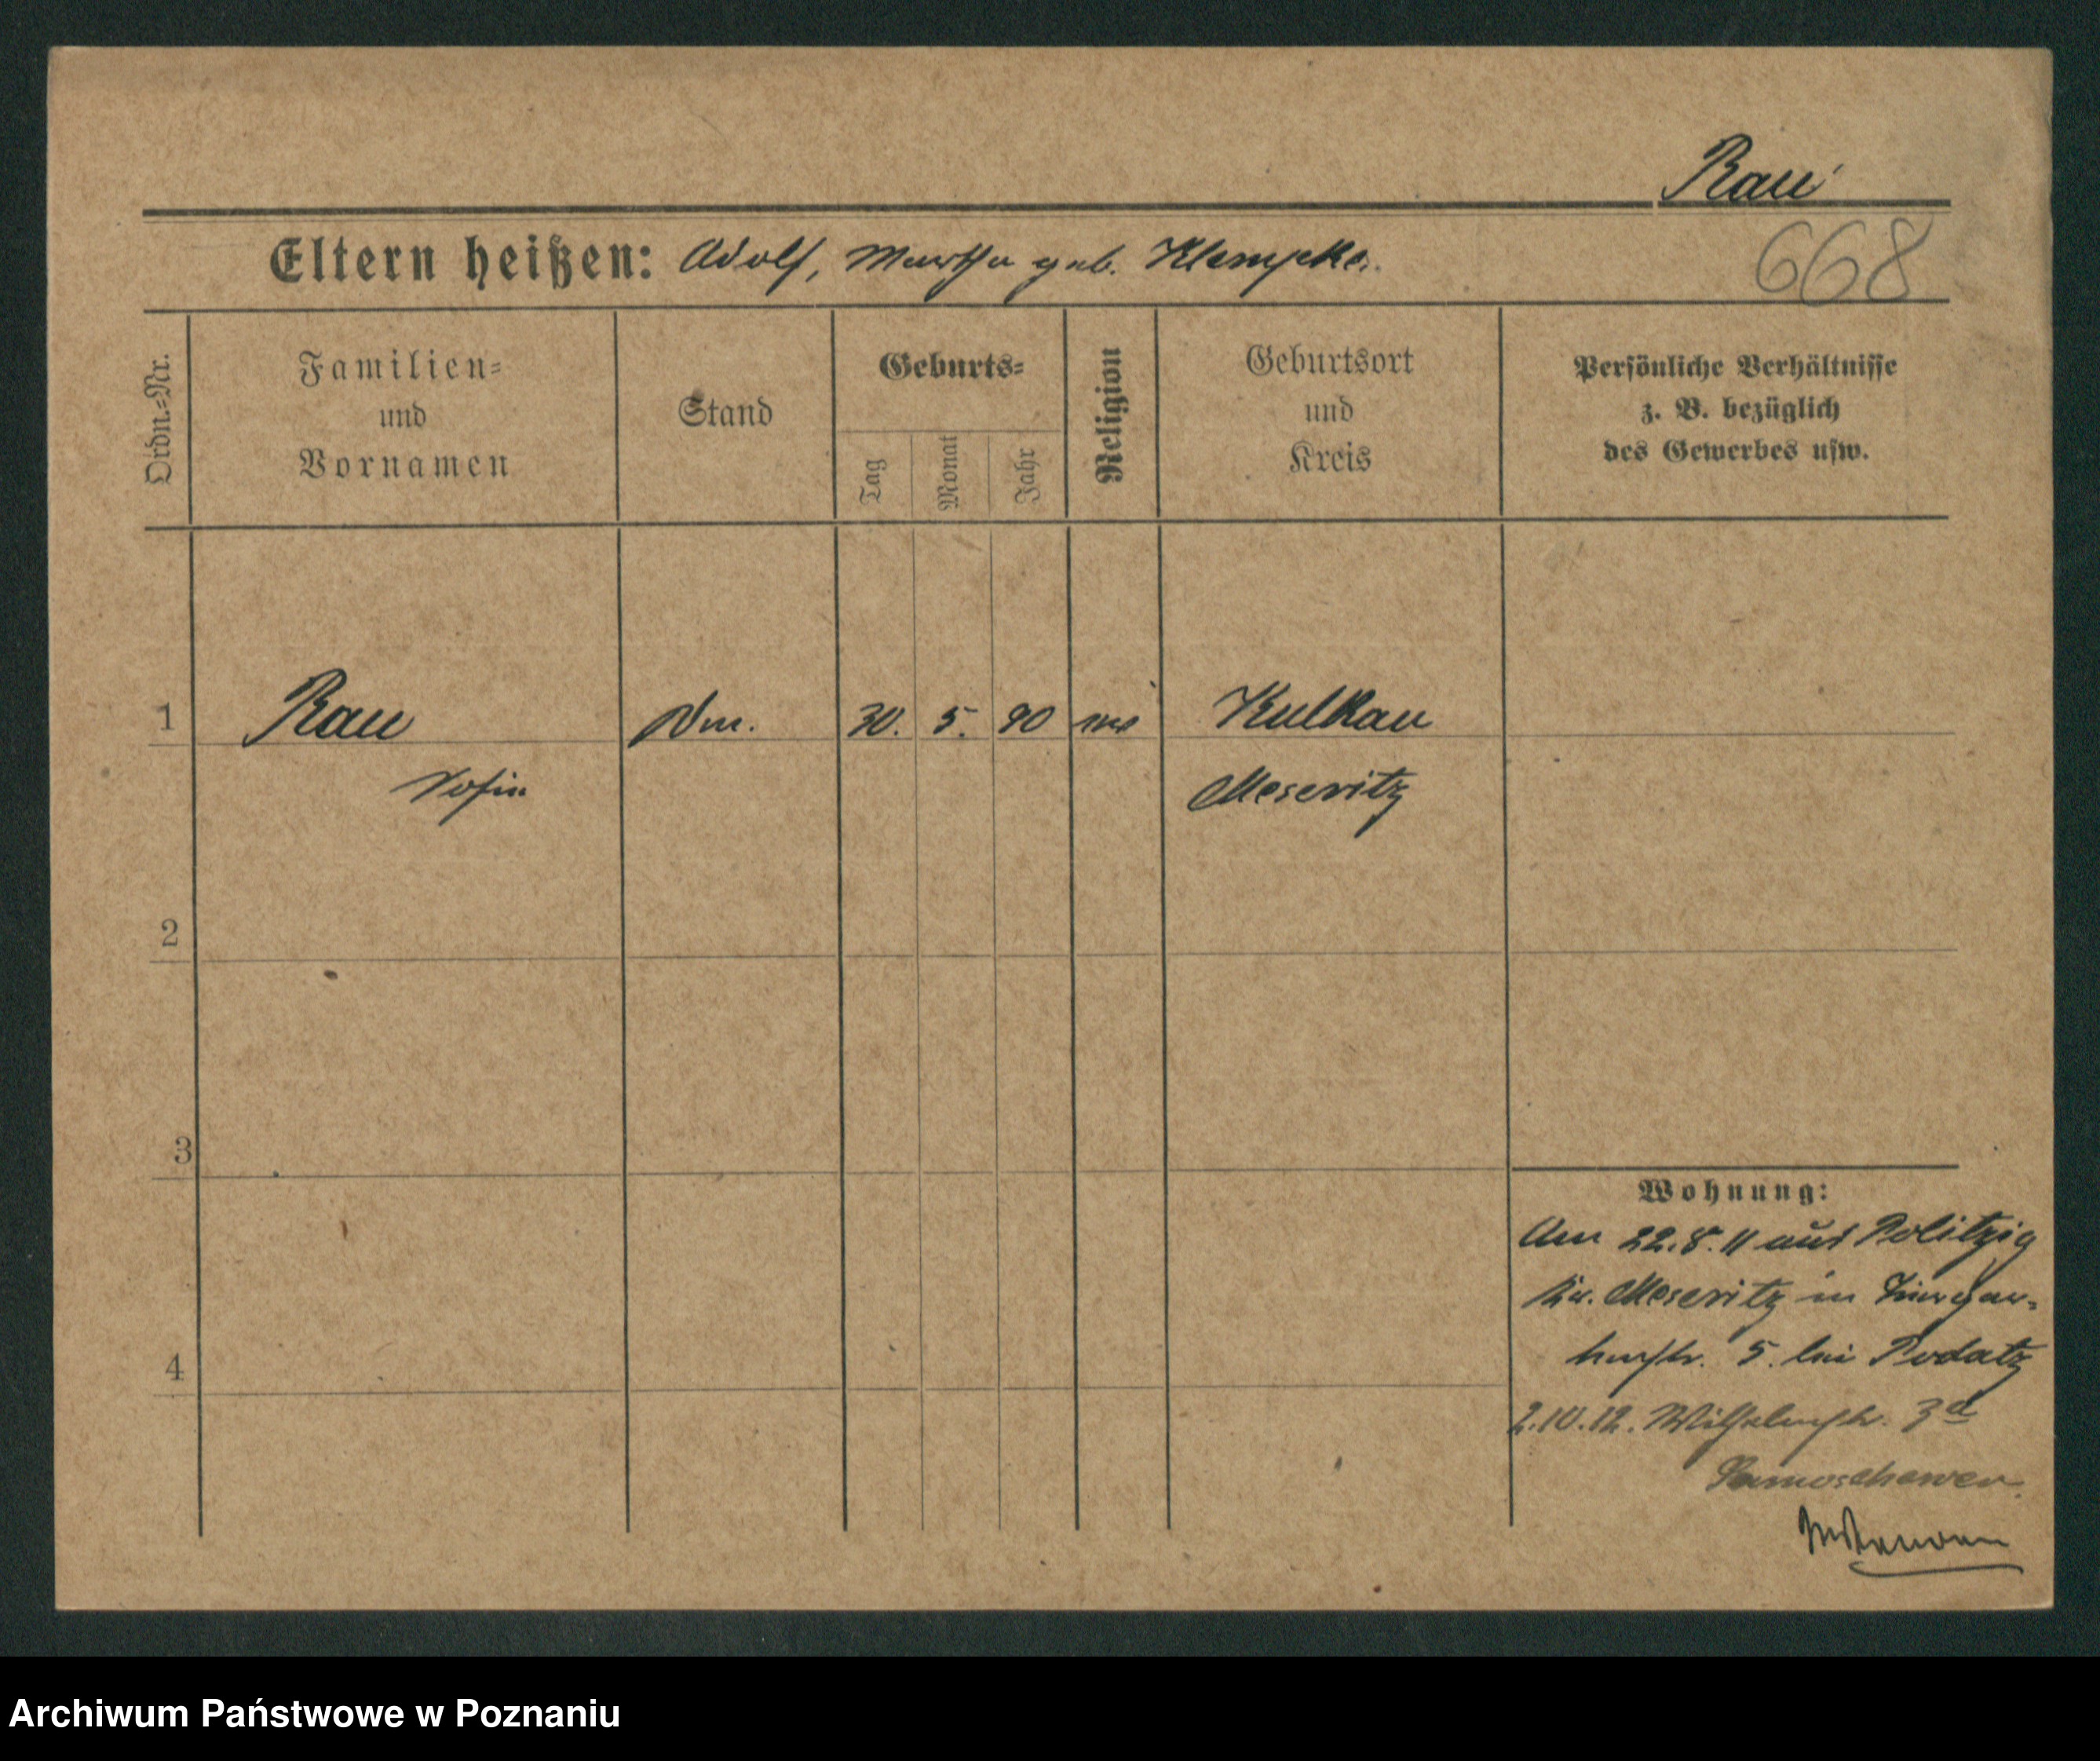 Rau
Eltern heißen: Adolf, Martha geb. Klempke.
668
Ordn.-Nr.
Familien-
und
Vornamen
Stand
Geburts-
Tag
Monat
Jahr
Religion
Geburtsort
und
Kreis
Persönliche Verhältnisse
z. B. bezüglich
des Gewerbes usw.
1 Rau 30. 5. 90 Kulkau
Meseritz
2
3
4
Wohnung:
Am 22.8.11 aus Politzig
Kr. Meseritz in
5. bei Podatz
2.10.12. Wilhelmstr. 3d